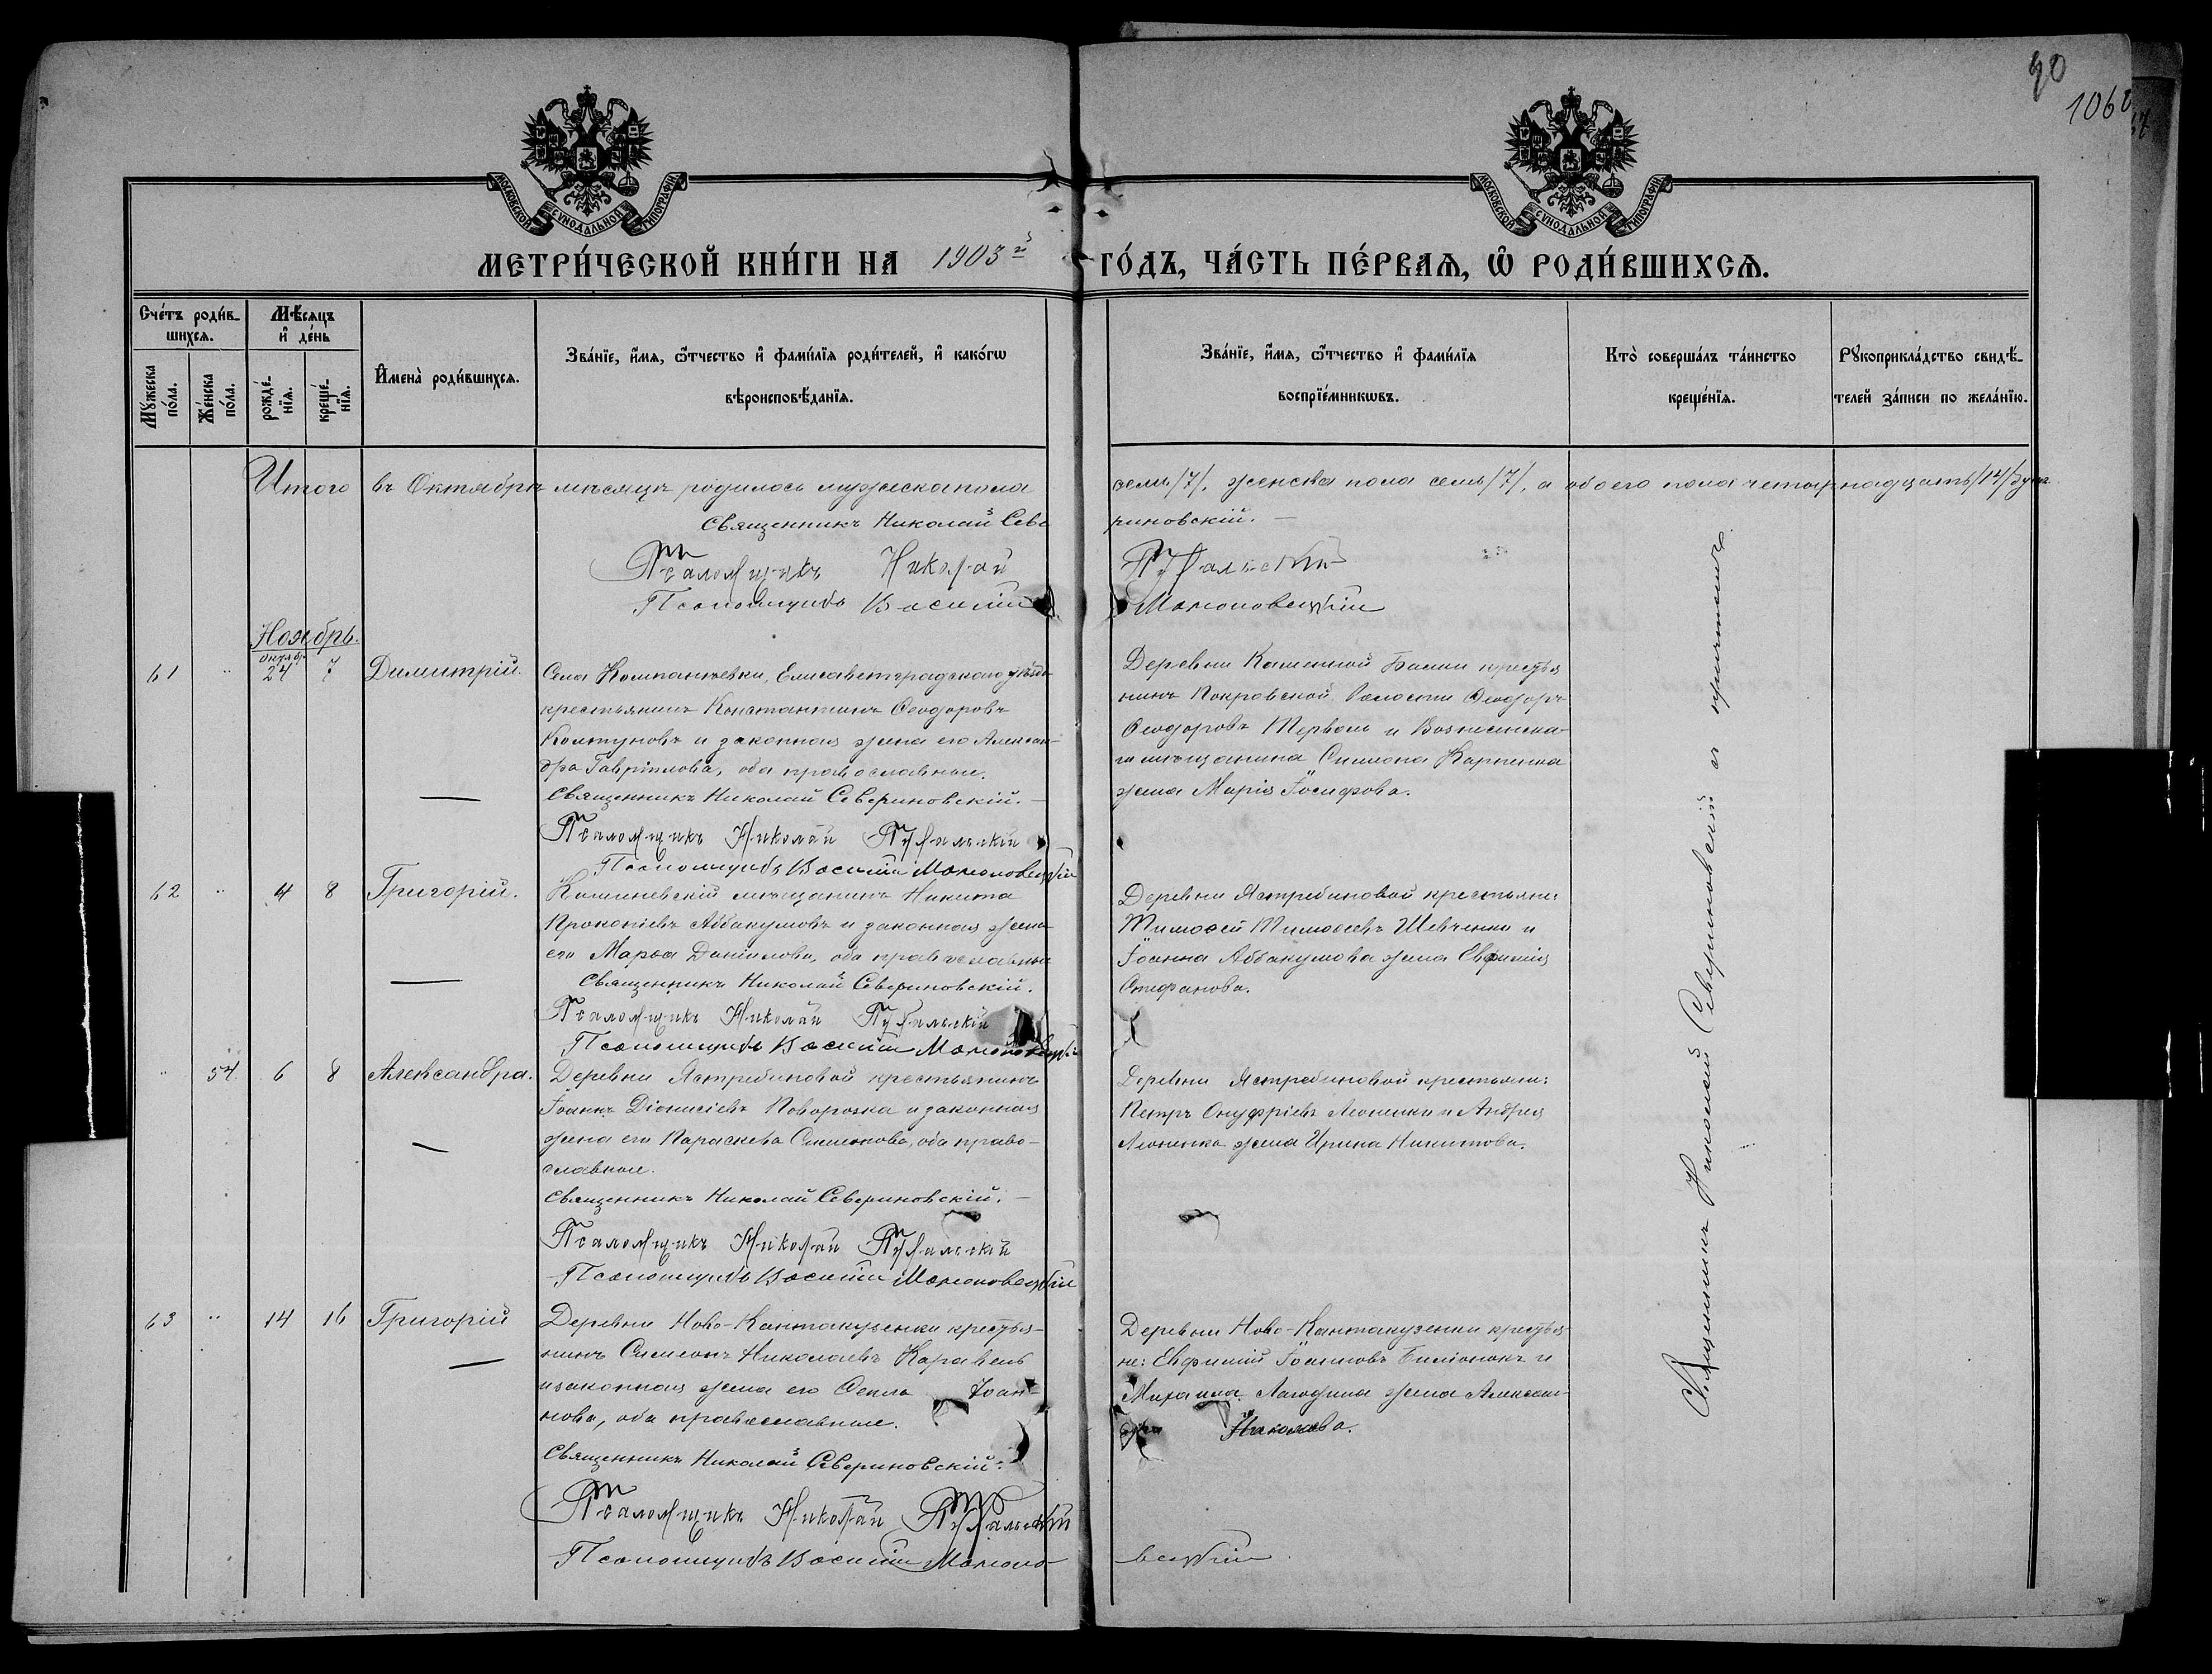 90
1060
МОСКОВСКОЙ СѴНОДАЛЬНОЙ ТИПОГРАФІИ
МОСКОВСКОЙ СѴНОДАЛЬНОЙ ТИПОГРАФІИ
МЕТРИ́ЧЕСКОЙ КНИ́ГИ НА 1903й ГО́ДЪ, ЧА́СТЬ ПЕ́РВАѦ, Ѽ РОДИ́ВШИХСѦ.
Сче́тъ роди́в-
шихсѧ.
Мꙋжеска по́ла.
Же́нска по́ла.
Мѣ́сѧцъ
и҆ де́нь
рожде́-
нїѧ.
креще́-
нїѧ.
И҆мена̀ роди́вшихсѧ.
Зва́нїе, и҆́мѧ, ѻ҆́тчество и҆ фами́лїѧ роди́телей, и҆ како́гѡ
вѣроисповѣ́данїѧ.
Зва́нїе, и҆́мѧ, ѻ҆́тчество и҆ фами́лїѧ
воспрїе́мникѡвъ.
Кто̀ соверша́лъ та́инство
креще́нїѧ.
Рꙋкоприкла́дство свидѣ́-
телей за́писи по жела́нїю.
Итого въ Октябрѣ мѣсяцѣ родилось мужеска пола семь /7/, женска пола семь /7/, а обоего пола четырнадцать /14/ душ.
Священникъ Николай Севериновскій.
Псаломщикъ Николай
Псаломщикъ Василій
Ноябрь.
61 " октябр. 24 7 Димитрій.
Села Компанѣевки, Елисаветградскаго уѣзда
крестьянинъ Константинъ Ѳеодоровъ
Колтуновъ и законная жена его Алексан-
дра Гавріилова, оба православные.
Священникъ Николай Севериновскій.
Псаломщикъ Николай
Псаломщикъ Василій
Деревни Каменной Балки крестья
нинъ Покровской Волости Ѳеодоръ
Ѳеодоровъ и Вознесенска-
го мѣщанина Симеона Карпенка
жена Марія Іосифова.
62 " 4 8 Григорій.
Кишиневскій мѣщанинъ Никита
Прокопіевъ Аввакумовъ и законная жена
его Марѳа Даніилова, оба православные
Священникъ Николай Севериновскій.
Псаломщикъ Николай
Псаломщикъ Василій
Деревни Ястребиновой крестьяне:
Тимоѳей Тимоѳеевъ Шевченко и
Іоанна Аввакумова жена Евфимія
Стефанова.
" 54 6 8 Александра.
Деревни Ястребиновой крестьянинъ
Іоаннъ Діонисіевъ и законная
жена его Параскева Симеонова, оба право-
славные.
Священникъ Николай Севериновскій.
Псаломщикъ Николай
Псаломщикъ Василій
Деревни Ястребиновой крестьяне:
Петръ Онуфріевъ Леоненко и Андрея
Леоненка жена Ирина Никитова.
63 " 14 16 Григорій
Деревни Ново-Кантакузенки крестья-
нинъ Симеонъ Николаевъ Каравель
и законная жена его Ѳекла Іоан-
нова, оба православные.
Священникъ Николай Севериновскій.
Псаломщикъ Николай
Псаломщикъ Василій
Деревни Ново-Кантакузенки крестья-
не: Евфимій Іоанновъ и
Михаила жена Алексан-
дра
Священникъ Николай Севериновскій съ причтомъ.